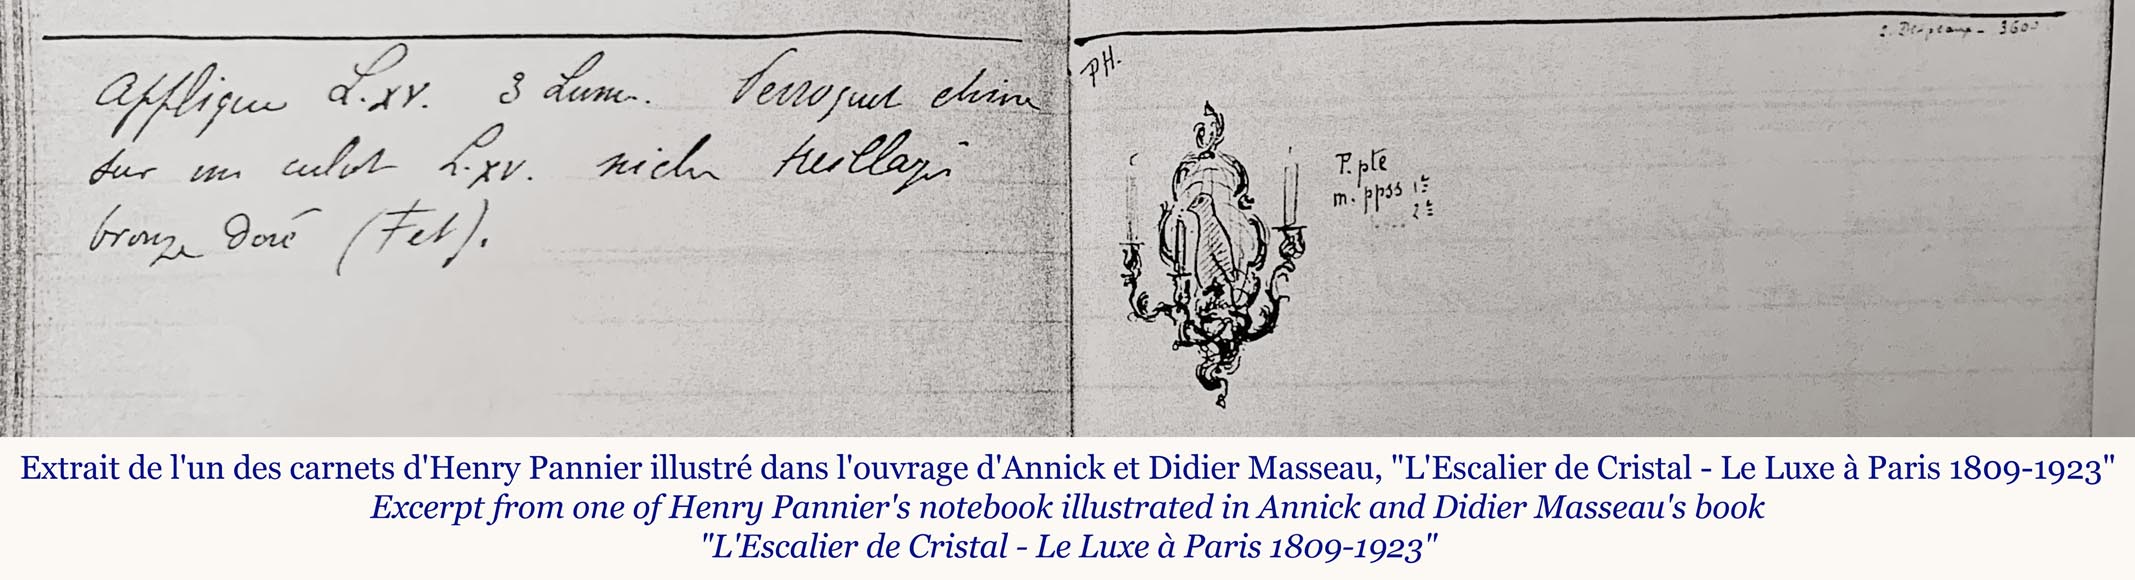 Applique L.XV. 3 Lum. Perroquet chine
sur un culot L.XV. niche treillagé
bronze doré (Fet).
PH.
P. pte
m. ppss 1re
2e
3600
Extrait de l'un des carnets d'Henry Pannier illustré dans l'ouvrage d'Annick et Didier Masseau, "L'Escalier de Cristal - Le Luxe à Paris 1809-1923"
Excerpt from one of Henry Pannier's notebook illustrated in Annick and Didier Masseau's book
"L'Escalier de Cristal - Le Luxe à Paris 1809-1923"